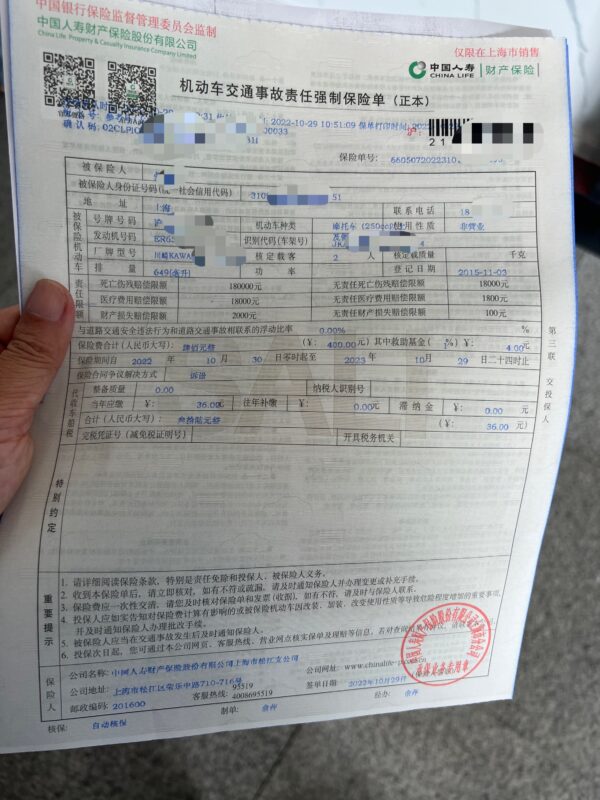 中国银行保险监督管理委员会监制
中国人寿财产保险股份有限公司
China Life Property & Casualty Insurance Company Limited
中国人寿
CHINA LIFE
财产保险
仅限在上海市销售
机动车交通事故责任强制保险单（正本）
2022-10-29 10:51:09 保单打印时间: 202
确认码: 02CLPIC
00033
沪:
21
保险单号: 6605072022310
被保险人
被保险人身份证号码(统一社会信用代码) 310 51
地址 上海 联系电话 18
被保险机动车
号牌号码 沪 机动车种类 摩托车 (250cc 使用性质 非营业
发动机号码 ER6 识别代码(车架号) JKA 4
厂牌型号 川崎KAWA 核定载客 2 人 核定载质量 千克
排量 649(毫升) 功率 登记日期 2015-11-03
责任限额
死亡伤残赔偿限额 180000元 无责任死亡伤残赔偿限额 18000元
医疗费用赔偿限额 18000元 无责任医疗费用赔偿限额 1800元
财产损失赔偿限额 2000元 无责任财产损失赔偿限额 100元
与道路交通安全违法行为和道路交通事故相联系的浮动比率 0.00% %
保险费合计(人民币大写): 肆佰元整 (¥: 400.00元)其中救助基金( 1%) ¥: 4.00元
保险期间自 2022 年 10 月 30 日零时起至 2023 年 10 月 29 日二十四时止
保险合同争议解决方式 诉讼
代收车船税
整备质量 0.00 纳税人识别号
当年应缴 ¥: 36.00元 往年补缴 ¥: 0.00元 滞纳金 ¥: 0.00 元
合计(人民币大写): 叁拾陆元整 (¥: 36.00 元)
完税凭证号(减免税证明号) 开具税务机关
特别约定
第三联 交投保人
重要提示
1. 请详细阅读保险条款，特别是责任免除和投保人、被保险人义务。
2. 收到本保险单后，请立即核对，如有不符或疏漏，请及时通知保险人并办理变更或补充手续。
3. 保险费应一次性交清，请您及时核对保险单和发票(收据)，如有不符，请及时与保险人联系。
4. 投保人应如实告知对保险费计算有影响的或被保险机动车因改装、加装、改变使用性质等导致危险程度增加的重要事项，
并及时通知保险人办理批改手续。
5. 被保险人应当在交通事故发生后及时通知保险人。
6. 投保次日起，您可通过本公司网页、客服热线、营业网点核实保单及理赔等信息。若对查询
保险人
公司名称: 中国人寿财产保险股份有限公司上海市松江支公司
公司地址: 上海市松江区荣乐中路710-716号 公司网址: www.chinalife-p.com.cn
邮政编码: 201600 客服热线: 95519 4008695519 签单日期: 2022年10月29日
核保: 自动核保 制单: 余烨 经办: 余烨